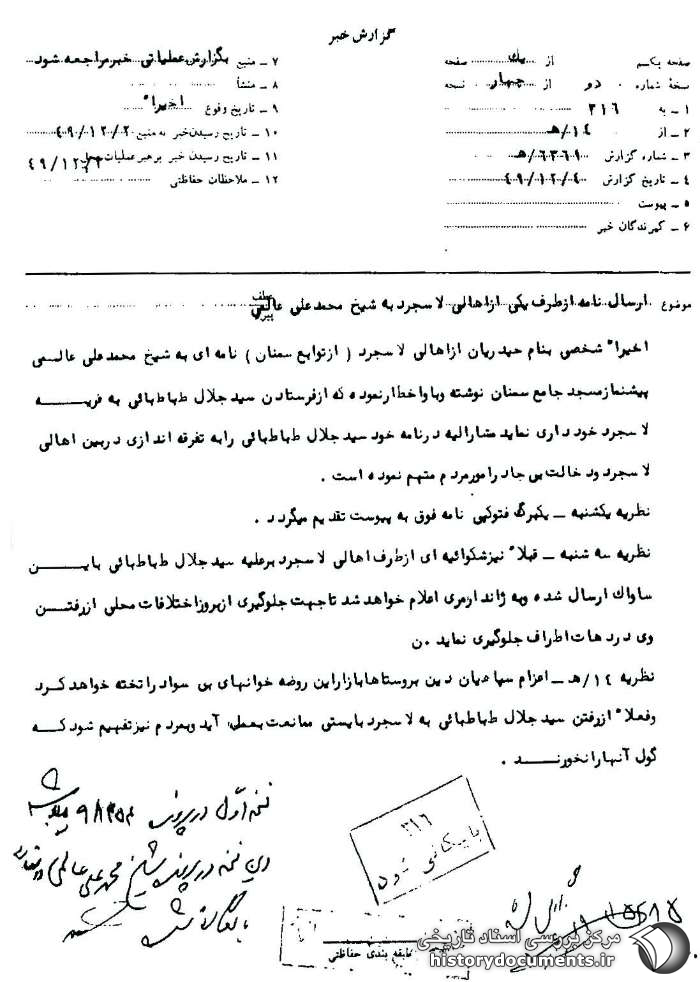 گزارش خبر
صفحه یکم از یک صفحه
نسخهٔ شماره دو از چهار نسخه
۱ ـ به ۳۱۶
۲ ـ از ۱۴/ه‍
۳ ـ شماره گزارش ۶۳۶۹/ه‍
۴ ـ تاریخ گزارش ۴۹/۱۲/۴
۵ ـ پیوست
۶ ـ گیرندگان خبر
۷ ـ منبع بگزارش عملیاتی خبر مراجعه شود
۸ ـ منشأ
۹ ـ تاریخ وقوع اخیراً
۱۰ ـ تاریخ رسیدن خبر به منبع ۴۹/۱۲/۲
۱۱ ـ تاریخ رسیدن خبر برهبر عملیات محل ۴۹/۱۲/۲
۱۲ ـ ملاحظات حفاظتی
موضوع ارسال نامه از طرف یکی از اهالی لاسجرد به شیخ محمدعلی عالمی
عطف
پیرو
اخیراً شخصی بنام حیدریان از اهالی لاسجرد ( از توابع سمنان ) نامه ای به شیخ محمدعلی عالمی
پیشنماز مسجد جامع سمنان نوشته و باو اخطار نموده که از فرستادن سید جلال طباطبائی به قریه
لاسجرد خود داری نماید مشارالیه در نامه خود سید جلال طباطبائی را به تفرقه اندازی در بین اهالی
لاسجرد و دخالت بی جا در امور مردم متهم نموده است .
نظریه یکشنبه ـ یکبرگ فتوکپی نامه فوق به پیوست تقدیم میگردد .
نظریه سه شنبه ـ قبلاً نیز شکوائیه ای از طرف اهالی لاسجرد بر علیه سید جلال طباطبائی باین
ساواک ارسال شده و به ژاندارمری اعلام خواهد شد تا جهت جلوگیری از بروز اختلافات محلی از رفتن
وی در دهات اطراف جلوگیری نماید . ن
نظریه ۱۴/ه‍ ـ اعزام سپاهیان دین بروستاها بازار این روضه خوانهای بی سواد را تخته خواهد کرد
و فعلاً از رفتن سید جلال طباطبائی به لاسجرد بایستی ممانعت بعمل آید و بمردم نیز تفهیم شود که
گول آنها را نخورند .
نسخه اول در پرونده ۹۸۳۵۲
این نسخه در پرونده شیخ محمدعلی عالمی
بایگانی شد
۳۱۶
بایگانی شود
طبقه بندی حفاظتی
مرکز بررسی اسناد تاریخی
historydocuments.ir